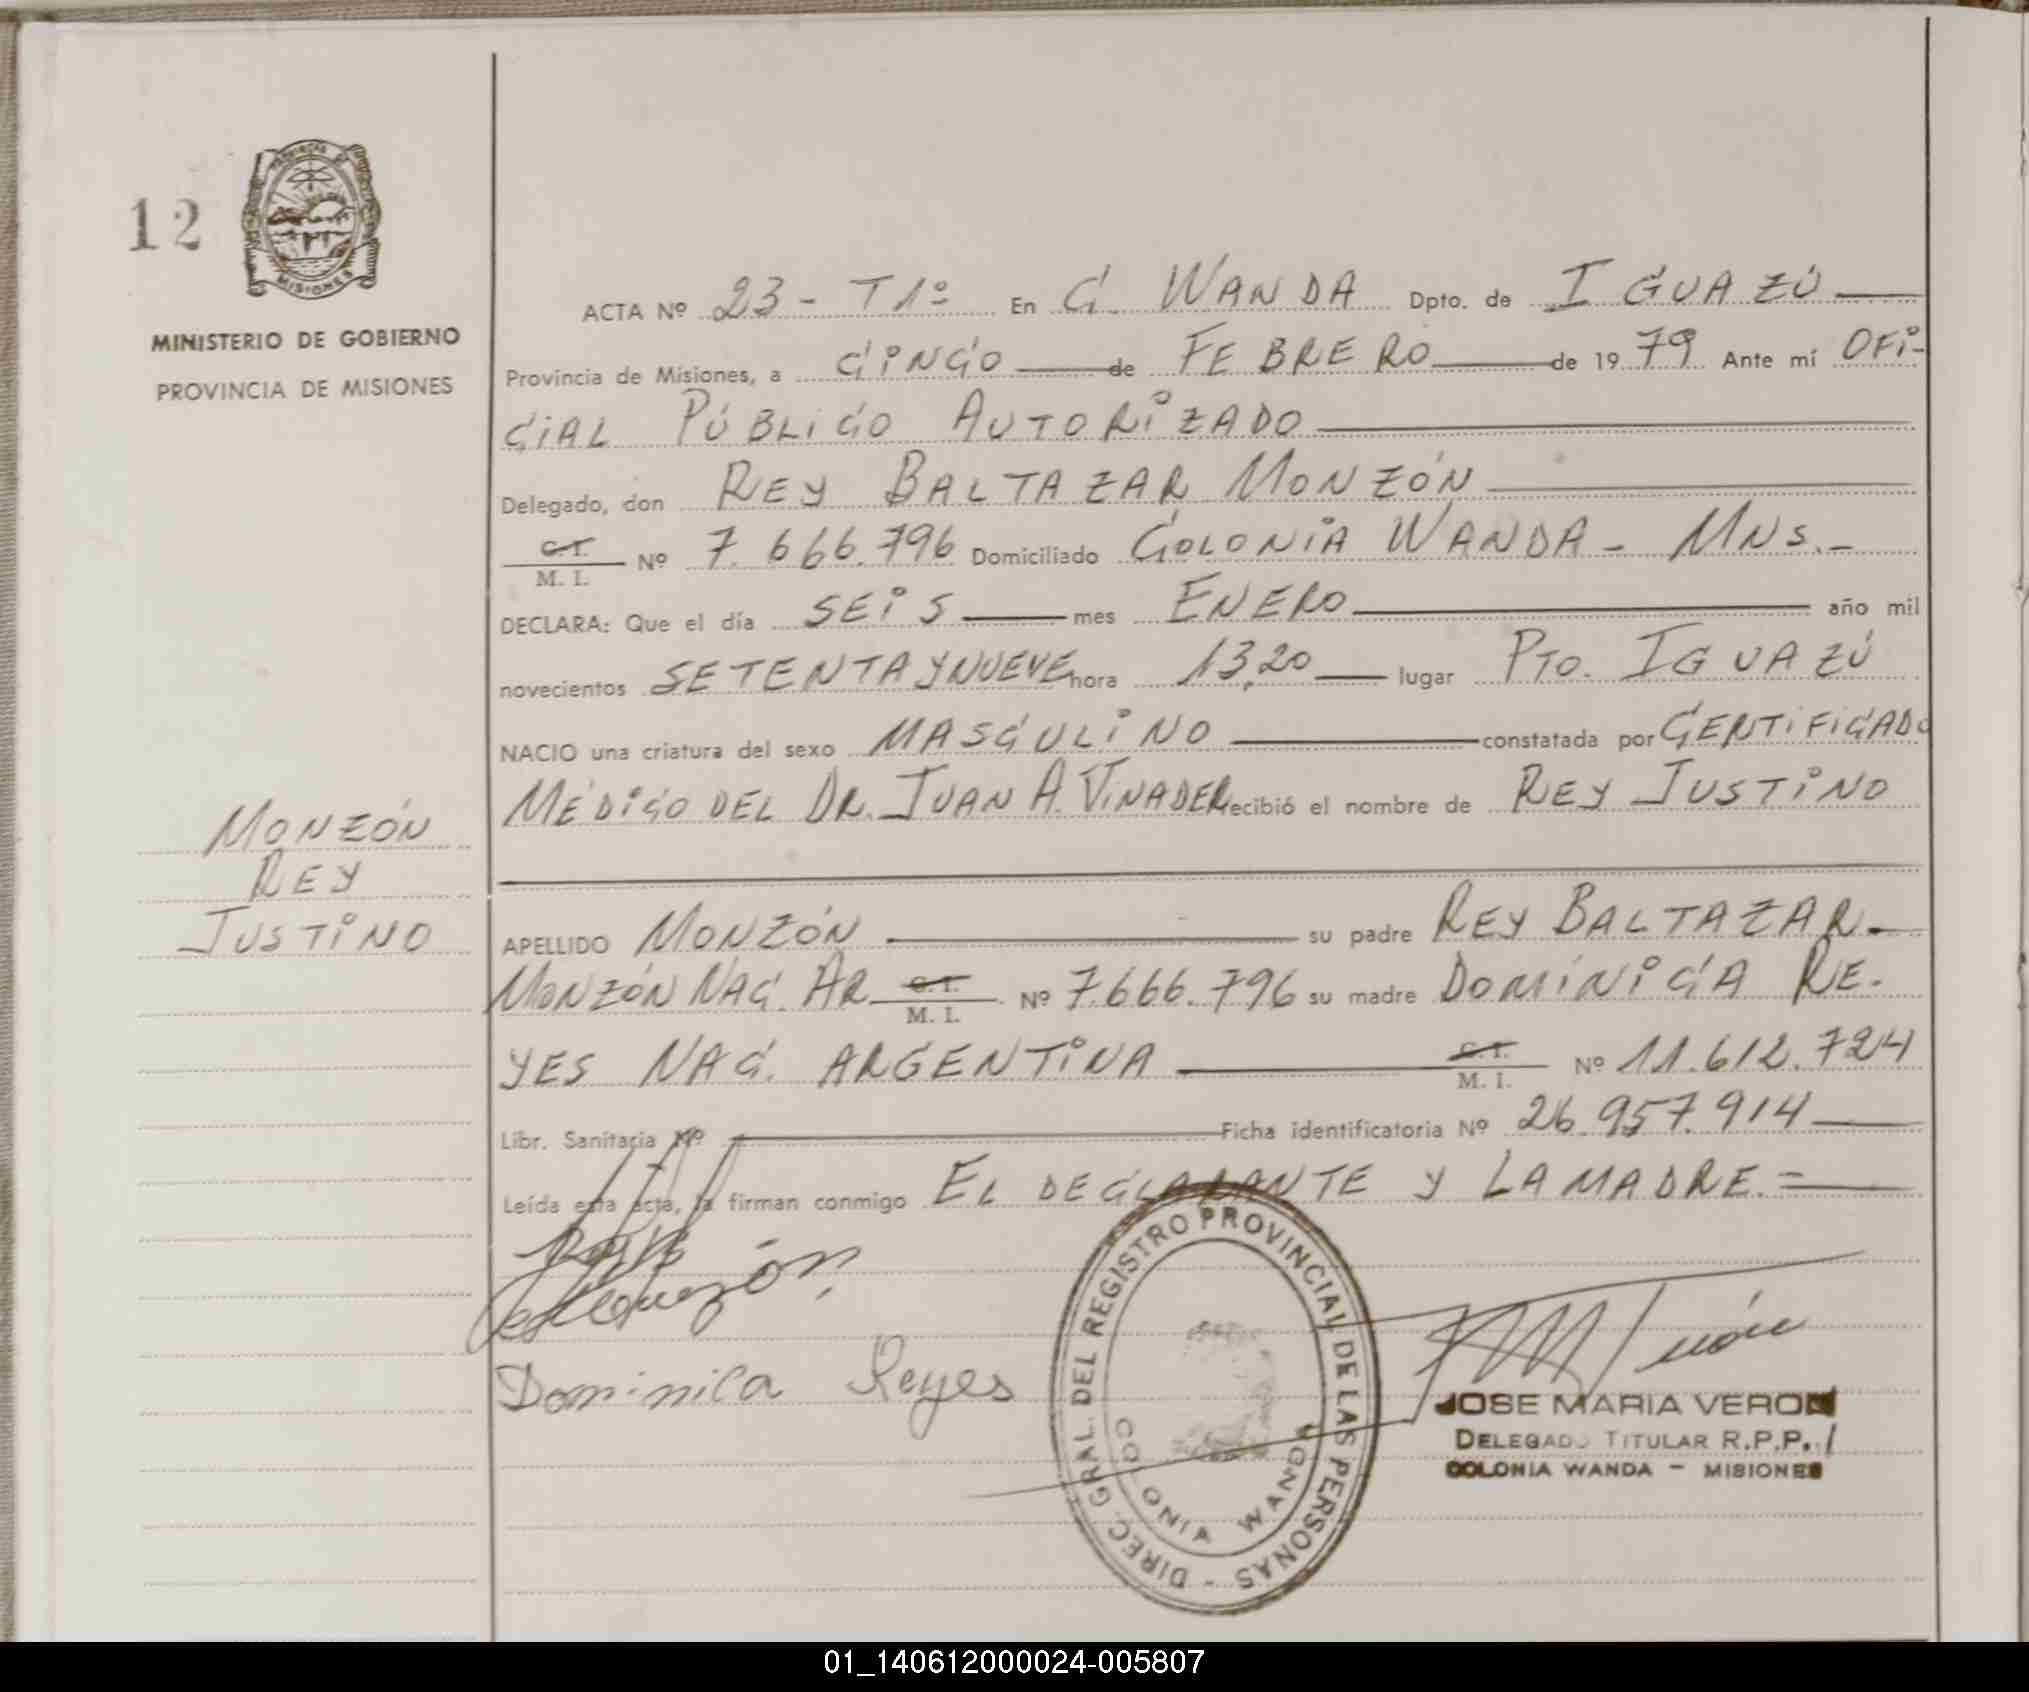 12
PROVINCIA DE
MISIONES
MINISTERIO DE GOBIERNO
PROVINCIA DE MISIONES
MONZÓN
REY
JUSTINO
ACTA Nº 23 - T 1º En C. WANDA Dpto. de IGUAZÚ
Provincia de Misiones, a CINCO de FEBRERO de 1979 Ante mí OFI-
CIAL PÚBLICO AUTORIZADO
Delegado, don REY BALTAZAR MONZÓN
C.I.
M. I. Nº 7.666.796 Domiciliado COLONIA WANDA - MNS.-
DECLARA: Que el día SEIS mes ENERO año mil
novecientos SETENTA Y NUEVE hora 13,20 lugar PTO. IGUAZÚ
NACIO una criatura del sexo MASCULINO constatada por CERTIFICADO
MÉDICO DEL DR. JUAN A. VINADER recibió el nombre de REY JUSTINO
APELLIDO MONZÓN su padre REY BALTAZAR.
MONZÓN NAC. AR. C.I. M. I. Nº 7.666.796 su madre DOMINICA RE.
YES NAC. ARGENTINA C.I. M. I. Nº 11.612.724
Libr. Sanitaria Nº Ficha identificatoria Nº 26.957.914
Leída esta acta, la firman conmigo EL DECLARANTE Y LA MADRE.=
Monzón
Dominica Reyes
DIREC. GRAL. DEL REGISTRO PROVINCIAL DE LAS PERSONAS -
COLONIA WANDA
JOSE MARIA VERON
DELEGADO TITULAR R.P.P.
COLONIA WANDA - MISIONES
01_140612000024-005807